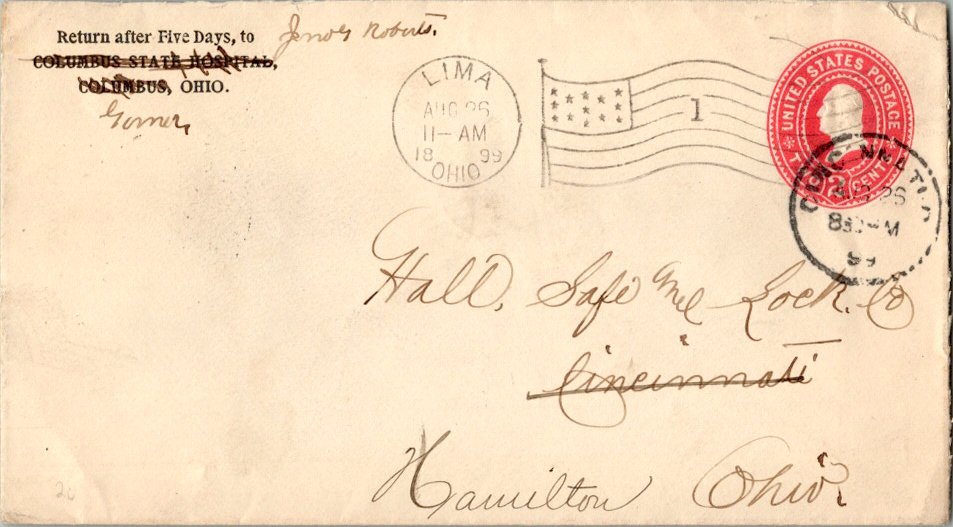 Return after Five Days, to
Roberts.
COLUMBUS STATE HOSPITAL,
COLUMBUS, OHIO.
Gomer,
LIMA
AUG 26
11-AM
18 99
OHIO
1
UNITED STATES POSTAGE
2 CENTS
CINCINNATI, O
AUG 26
830PM
99
Hall, Safe and Lock. Co
Cincinnati
Hamilton Ohio.
20